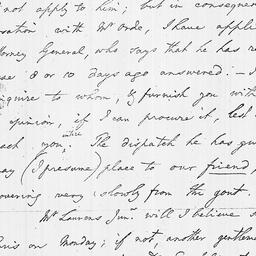 not apply to him; but in consequen
ration with Mr Orde, I have appli
torney General, who says that he has r
se 8 or 10 days ago answered. – I
nquire to whom, & furnish you with
opinion, if I can procure it, lest
ach you. The dispatch he has gi
ay (I presume) place to our friend,
overing very slowly from the gout.
Mr Laurens Junr. will I believe s
ris on Monday; if not, another gentlem